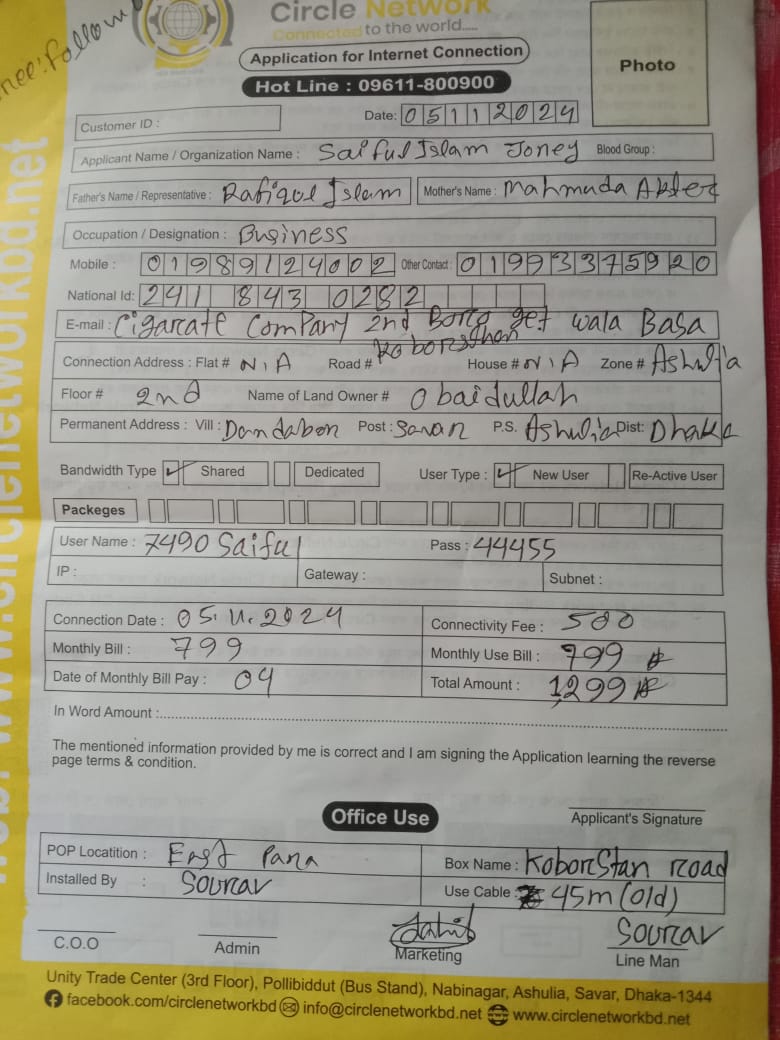 nee: follow
Circle Network
Connected to the world.....
Application for Internet Connection
Hot Line : 09611-800900
Photo
Customer ID :
Date: 05112024
Applicant Name / Organization Name : Saiful Islam Joney Blood Group :
Father's Name / Representative : Rafiqul Islam Mother's Name : Mahmuda Akter
Occupation / Designation : Business
Mobile : 01989124002 Other Contact : 01993375920
National Id: 241 843 0282
E-mail : Cigarate Company 2nd get wala Basa
Connection Address : Flat # N/A Road # Koborsthan House # N/A Zone # Ashulia
Floor # 2nd Name of Land Owner # Obaidullah
Permanent Address : Vill : Dandabor Post : Savar P.S. Ashulia Dist: Dhaka
Bandwidth Type ✓ Shared Dedicated User Type : ✓ New User Re-Active User
Packeges
User Name : 7490 Saiful Pass : 44455
IP : Gateway : Subnet :
Connection Date : 05.11.2024 Connectivity Fee : 500
Monthly Bill : 799 Monthly Use Bill : 799
Date of Monthly Bill Pay : 04 Total Amount : 1,299
In Word Amount :
The mentioned information provided by me is correct and I am signing the Application learning the reverse
page terms & condition.
Applicant's Signature
Office Use
POP Locatition : East Para Box Name : Koborstan road
Installed By : Sourav Use Cable : 45m (old)
Sourav
C.O.O Admin Marketing Line Man
Unity Trade Center (3rd Floor), Pollibiddut (Bus Stand), Nabinagar, Ashulia, Savar, Dhaka-1344
facebook.com/circlenetworkbd info@circlenetworkbd.net www.circlenetworkbd.net